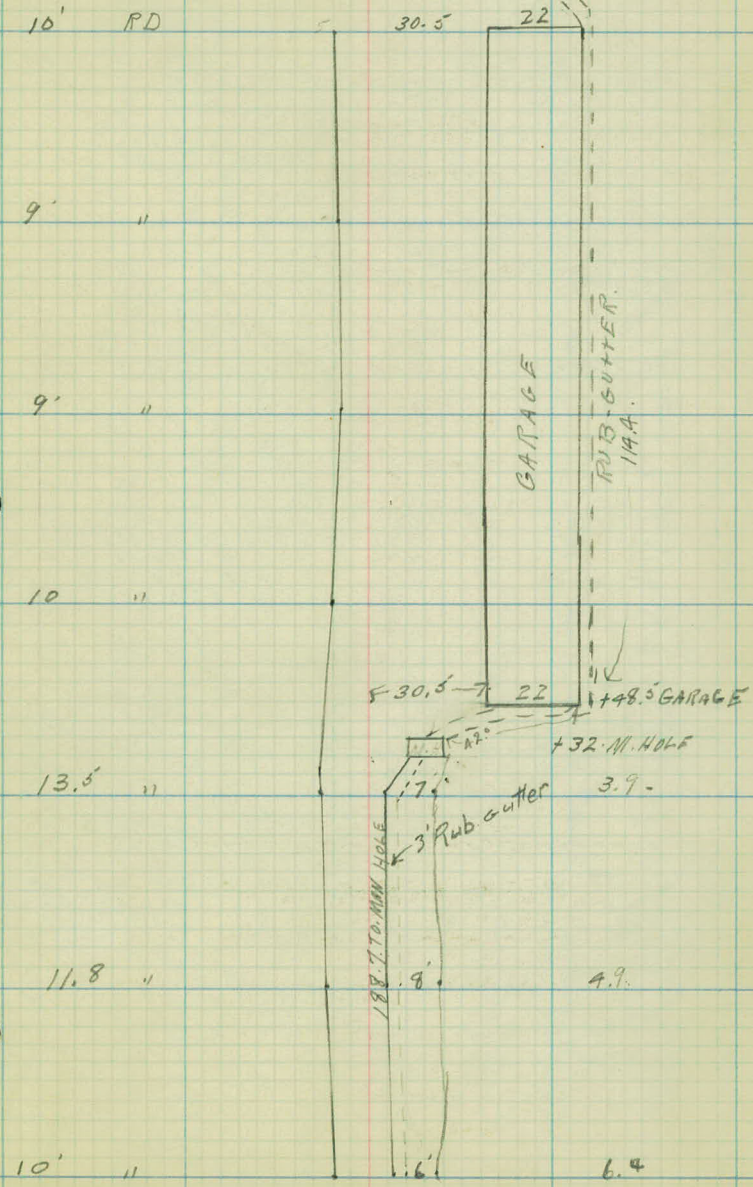 10' RD 30.5 22
9' "
9' "
GARAGE
RUB-GUTTER.
114.4.
10 "
30.5 22 +48.5 GARAGE
42° +32 M. HOLE
13.5 " 7 3.9-
3' Rub. Gutter
188.7. TO. MAN HOLE
11.8 " 8' 4.9.
10' " 6' 6.4